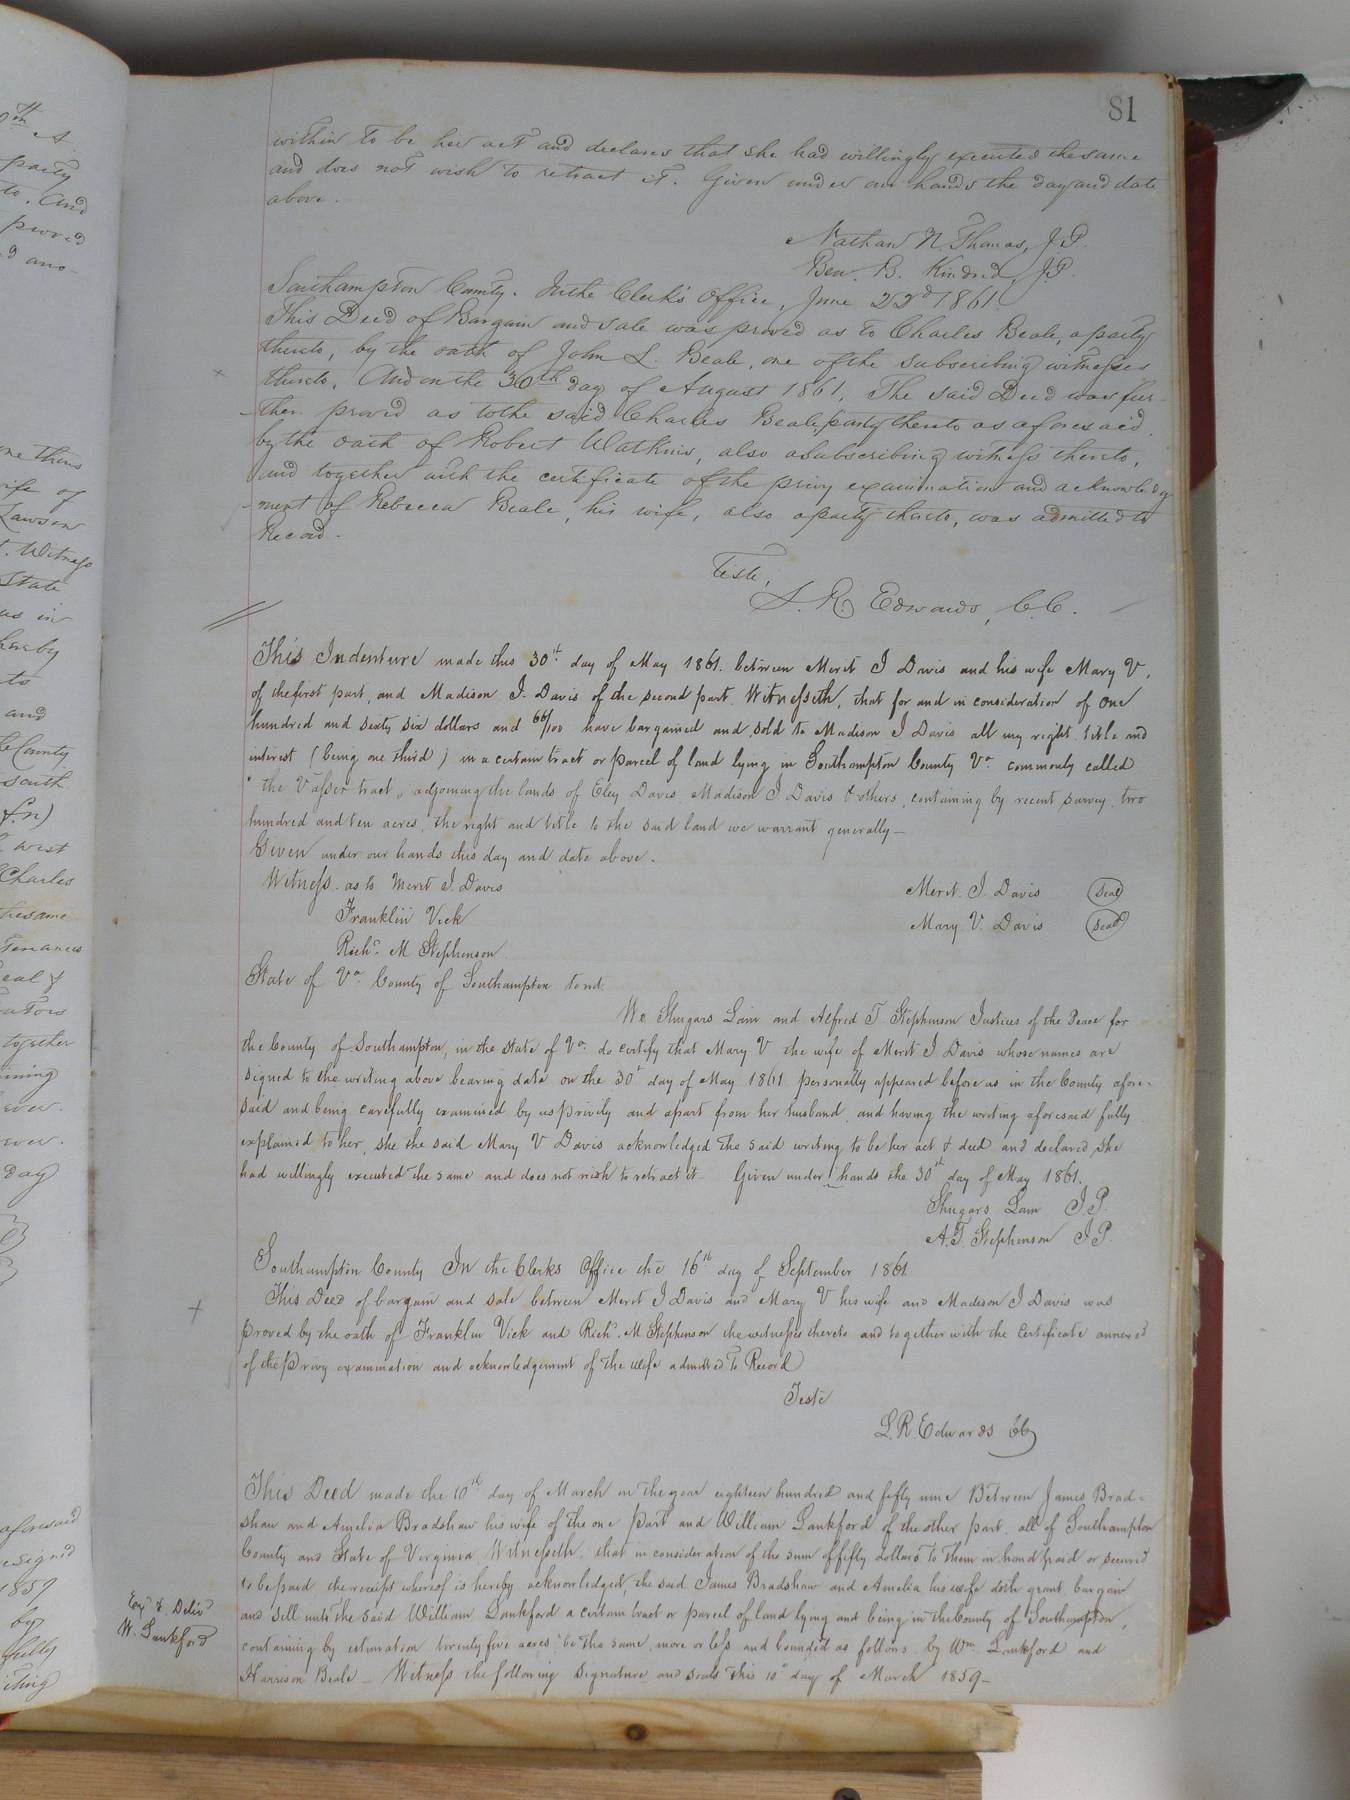 81
within to be her act and declares that she had willingly executed the same
and does not wish to retract it. Given under our hands the day and date
above.
Nathan N. Thomas, J.P.
Ben. B. Kindred, J.P.
Southampton County. In the Clerk's Office, June 22d 1861.
This Deed of Bargain and sale was proved as to Charles Beale, a party
thereto, by the oath of John L. Beale, one of the subscribing witnesses
thereto. And on the 30th day of August 1861, The said Deed was fur-
-ther proved as to the said Charles Beale, party thereto as aforesaid
by the oath of Robert Watkins, also a subscribing witness thereto,
and together with the certificate of the privy examination and acknowledg-
-ment of Rebecca Beale, his wife, also a party thereto, was admitted to
Record.
Teste,
L. R. Edwards, C.C.
This Indenture made this 30th day of May 1861. between Merit J Davis and his wife Mary V.
of the first part, and Madison J. Davis of the second part. Witnesseth, that for and in consideration of One
hundred and sixty six dollars and 66/100 have bargained and sold to Madison J Davis all my right, title and
interest (being one third) in a certain tract or parcel of land lying in Southampton County Va. commonly called
"the Vasser tract" adjoining the lands of Eley Davis Madison J Davis & others, containing by recent survey, two
hundred and ten acres, the right and title to the said land we warrant generally—
Given under our hands this day and date above.
Witness. as to Merit J. Davis
Merit. J Davis (Seal)
Franklin Vick
Mary V. Davis (Seal)
Richd. M Stephenson
State of Va. County of Southampton to wit.
We Shugars Lain and Alfred T. Stephenson Justices of the Peace for
the County of Southampton, in the State of Va. do certify that Mary V the wife of Merit J Davis whose names are
signed to the writing above bearing date on the 30t day of May 1861 personally appeared before us in the County afore-
said and being carefully examined by us privily and apart from her husband, and having the writing aforesaid fully
explained to her, she the said Mary V Davis acknowledged the said writing to be her act & deed and declared she
had willingly executed the same and does not wish to retract it Given under hands the 30th day of May 1861.
Shugars Lain J.P.
A.T. Stephenson J.P.
Southampton County In the Clerks Office the 16th day of September 1861
This Deed of bargain and sale between Merit J Davis and Mary V his wife and Madison J Davis was
proved by the oath of Franklin Vick and Richd. M Stephenson the witnesses thereto and together with the Certificate annexed
of the privy examination and acknowledgement of the wife admitted To Record
Teste
L.R. Edwards CC
This Deed made the 10th day of March in the year eighteen hundred and fifty nine Between James Brad-
shaw and Amelia Bradshaw his wife of the one part and William Lankford of the other part. all of Southampton
County and State of Virginia Witnesseth, that in consideration of the sum of fifty dollars to them in hand paid or secured
to be paid the receipt whereof is hereby acknowledged, the said James Bradshaw and Amelia his wife doth grant bargain
and sell unto the said William Lankford a certain tract or parcel of land lying and being in the County of Southampton,
containing by estimation twenty five acres, be the same more or less and bounded as follows. by Wm. Lankford and
Harrison Beale — Witness the following signature and seals this 10th day of March 1859—
Exd. & Delivd
W. Lankford